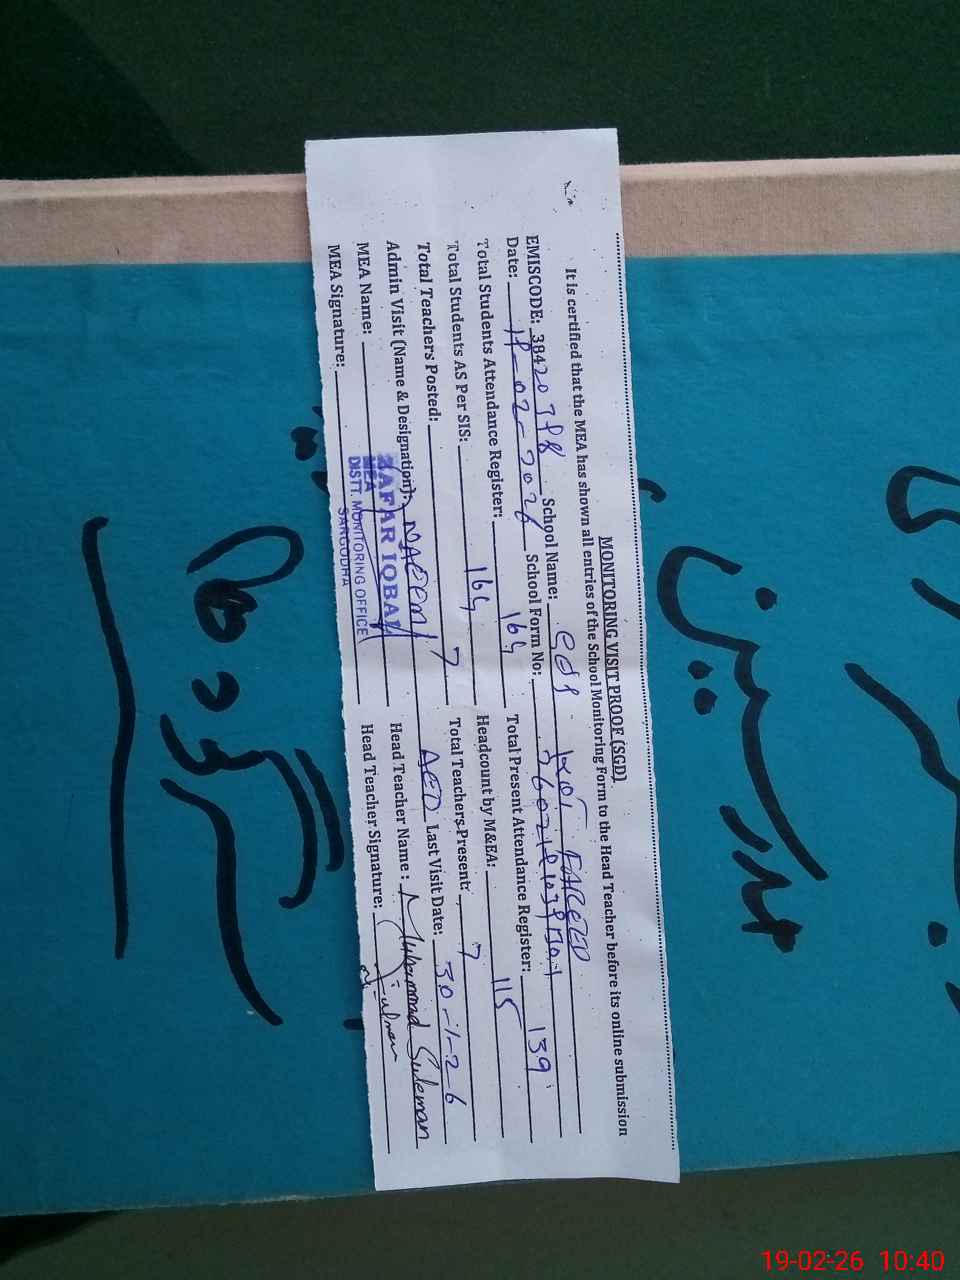 MONITORING VISIT PROOF (SGD)
It is certified that the MEA has shown all entries of the School Monitoring Form to the Head Teacher before its online submission
EMISCODE: 38420398 School Name: GPS
Date: 19-02-2026 School Form No:
Total Students Attendance Register: 164 Total Present Attendance Register: 139
Total Students AS Per SIS: 164 Headcount by M&EA: 115
Total Teachers Posted: 7 Total Teachers Present: 7
Admin Visit (Name & Designation): NAEEM AEO Last Visit Date: 30-1-26
MEA Name: ZAFAR IQBAL Head Teacher Name: Muhammad Suleman
MEA
MEA Signature: Head Teacher Signature:
DISTT. MONITORING OFFICE
SARGODHA
سرگودھا
19-02-26 10:40